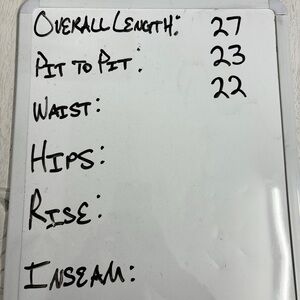 OVERALL LENGTH: 27
PIT TO PIT: 23
WAIST: 22
HIPS:
RISE:
INSEAM: